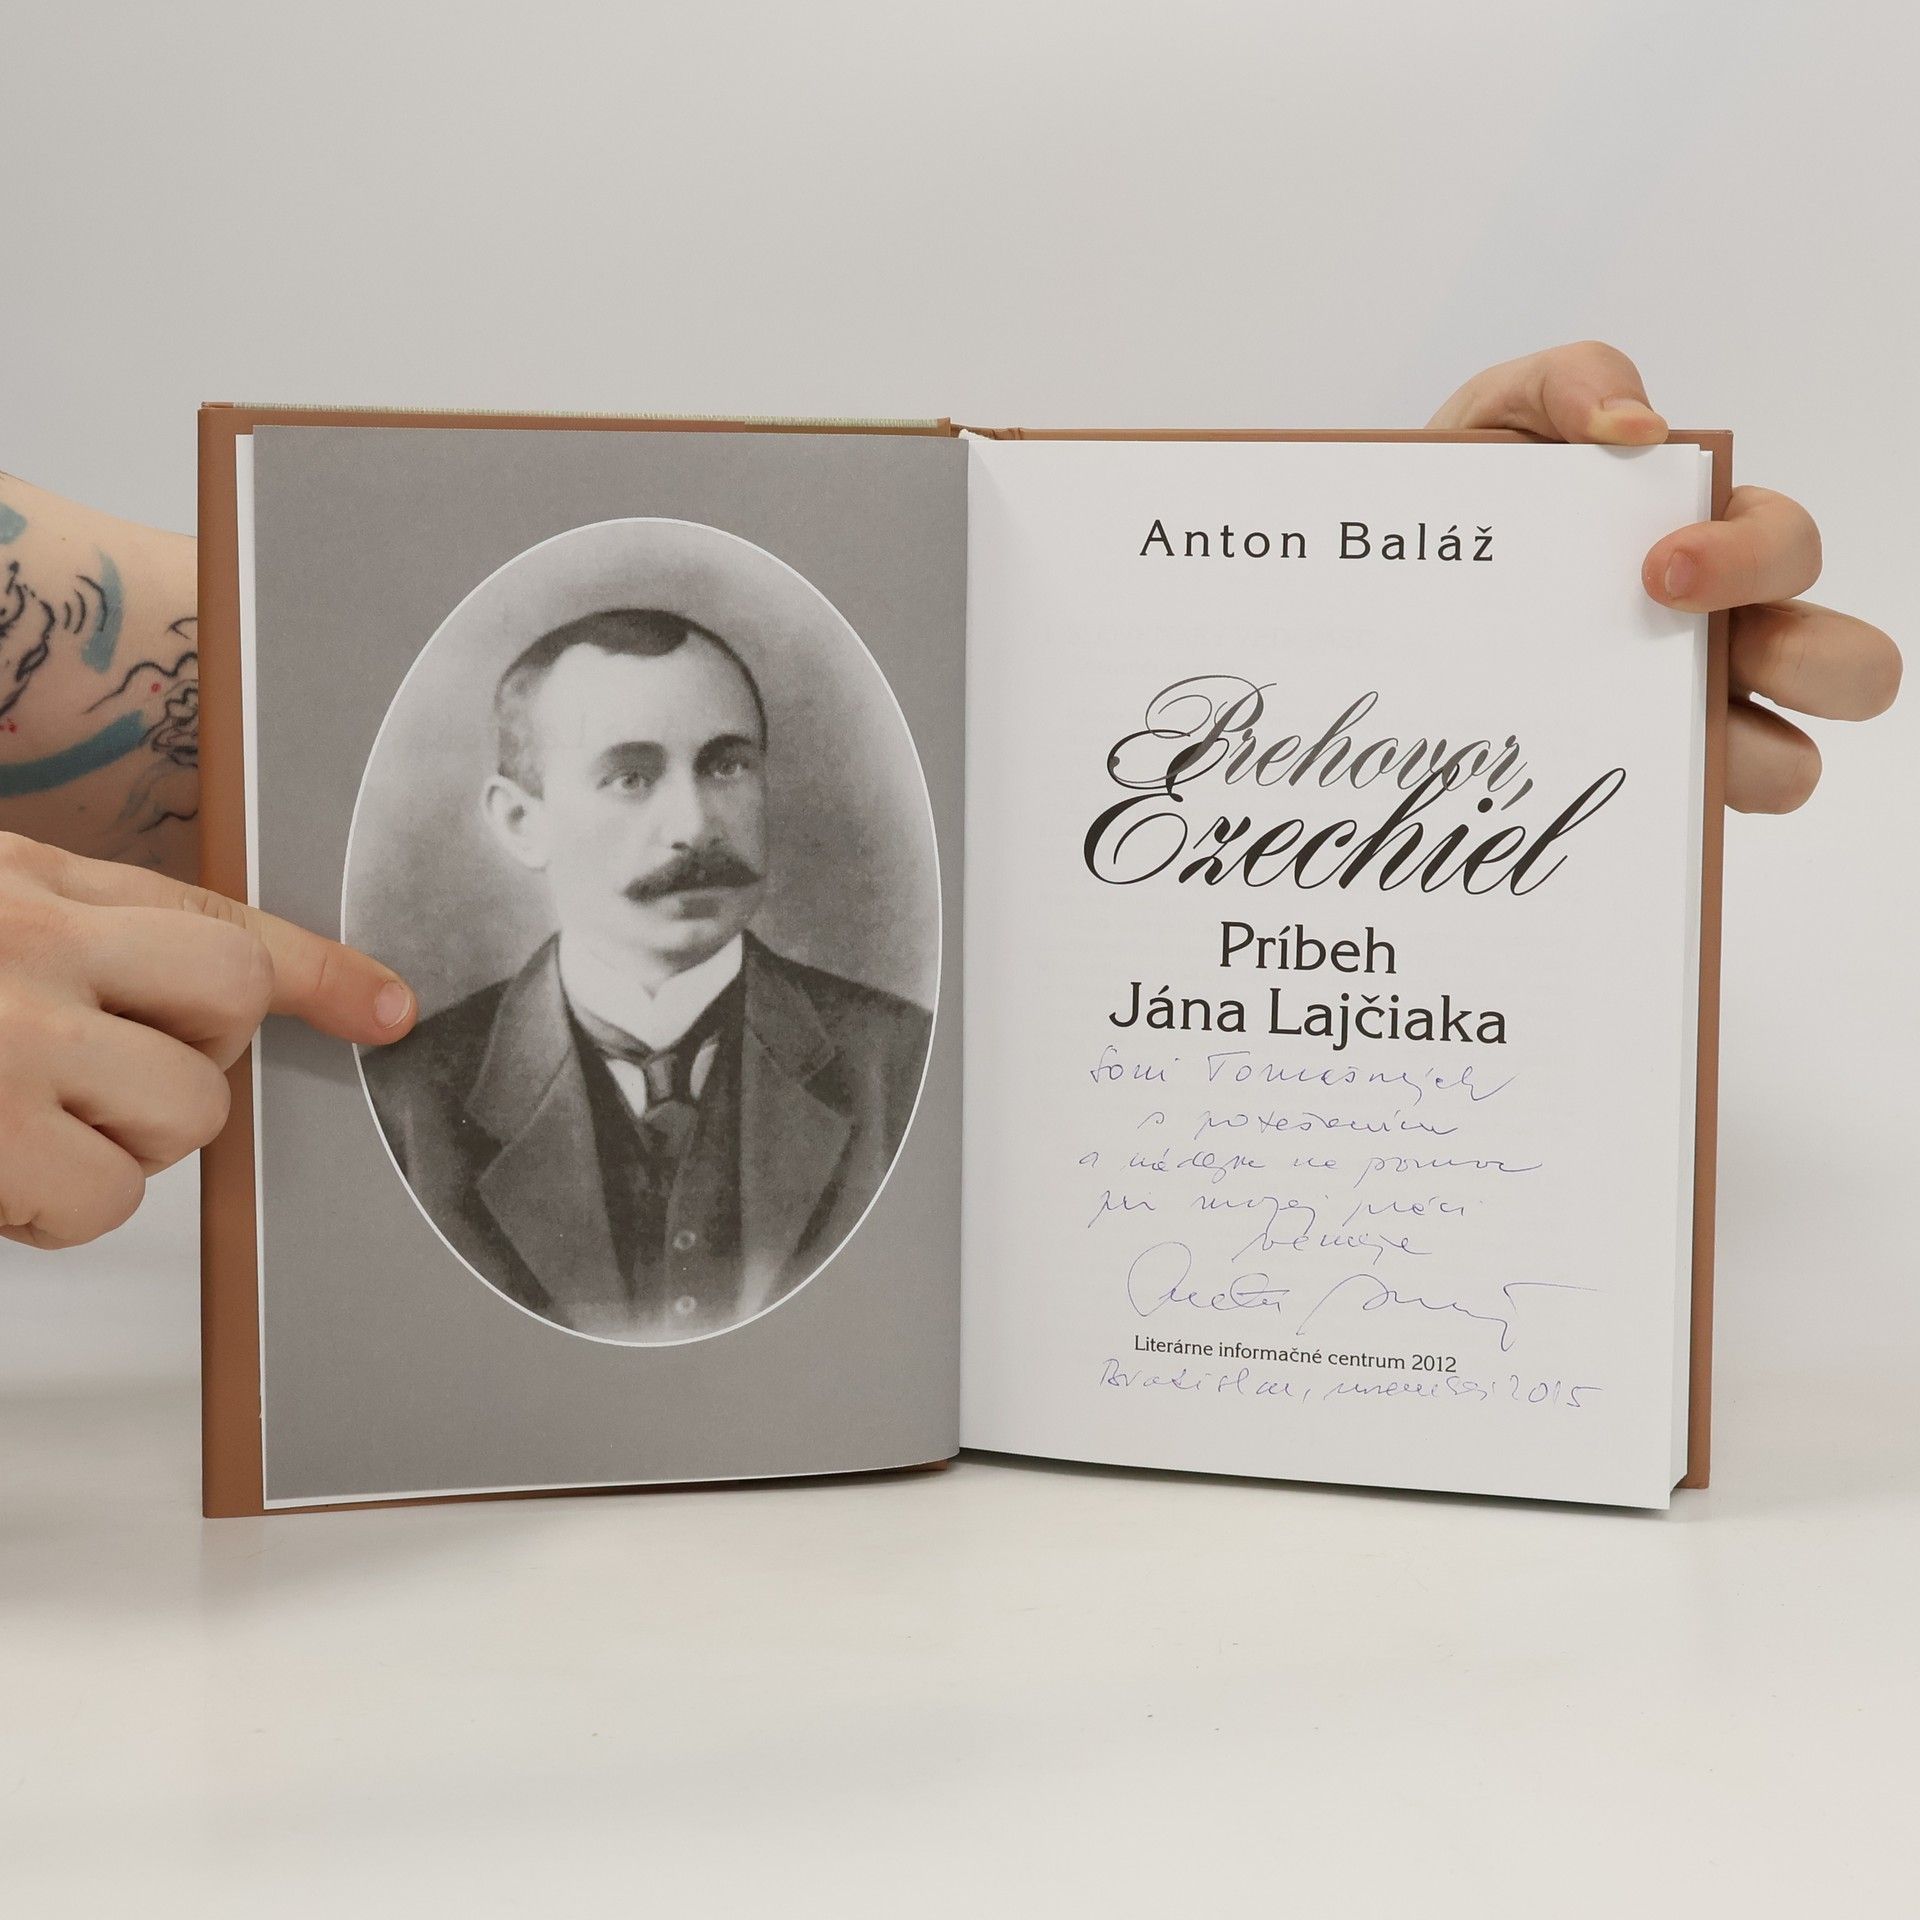 Anton Baláž
Prehovor,
Ezechiel
Príbeh
Jána Lajčiaka
Soni Tomašových
s potešením
a na pomoc
pri mojej práci
venuje
Literárne informačné centrum 2012
Bratislava, november 2015